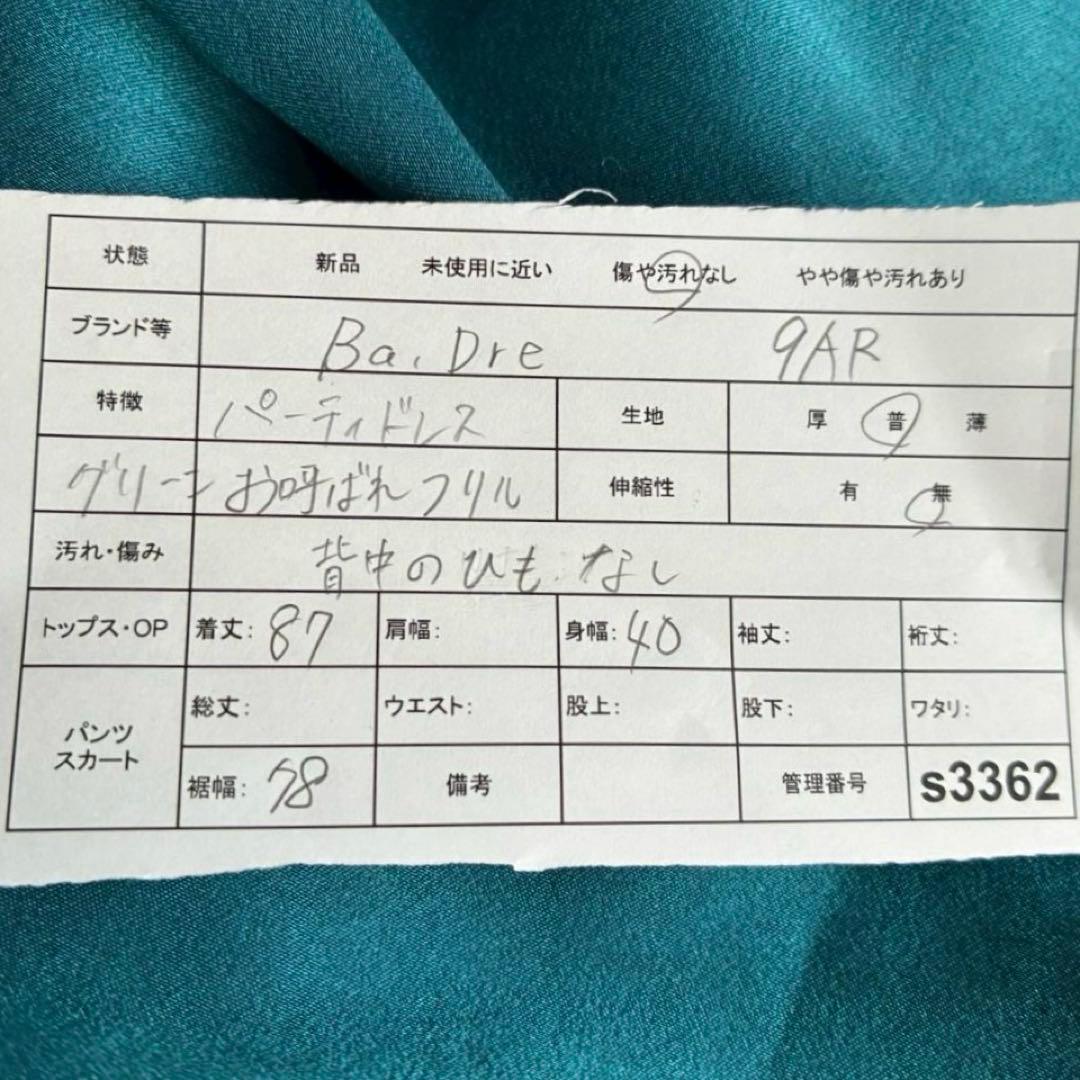 状態 新品 未使用に近い 傷や汚れなし やや傷や汚れあり
ブランド等 Ba,Dre 9AR
特徴 パーティドレス 生地 厚 普 薄
グリーン お呼ばれ フリル 伸縮性 有 無
汚れ・傷み 背中のひもなし
トップス・OP 着丈: 87 肩幅: 身幅: 40 袖丈: 裄丈:
パンツ スカート 総丈: ウエスト: 股上: 股下: ワタリ:
裾幅: 78 備考 管理番号 s3362